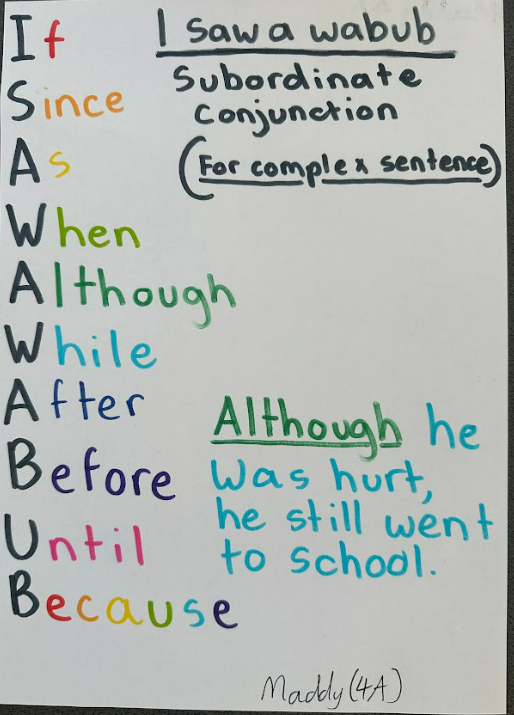 If
Since
As
When
Although
While
After
Before
Until
Because
I saw a wabub
Subordinate
Conjunction
(For complex sentence)
Although he
was hurt,
he still went
to school.
Maddy (4A)